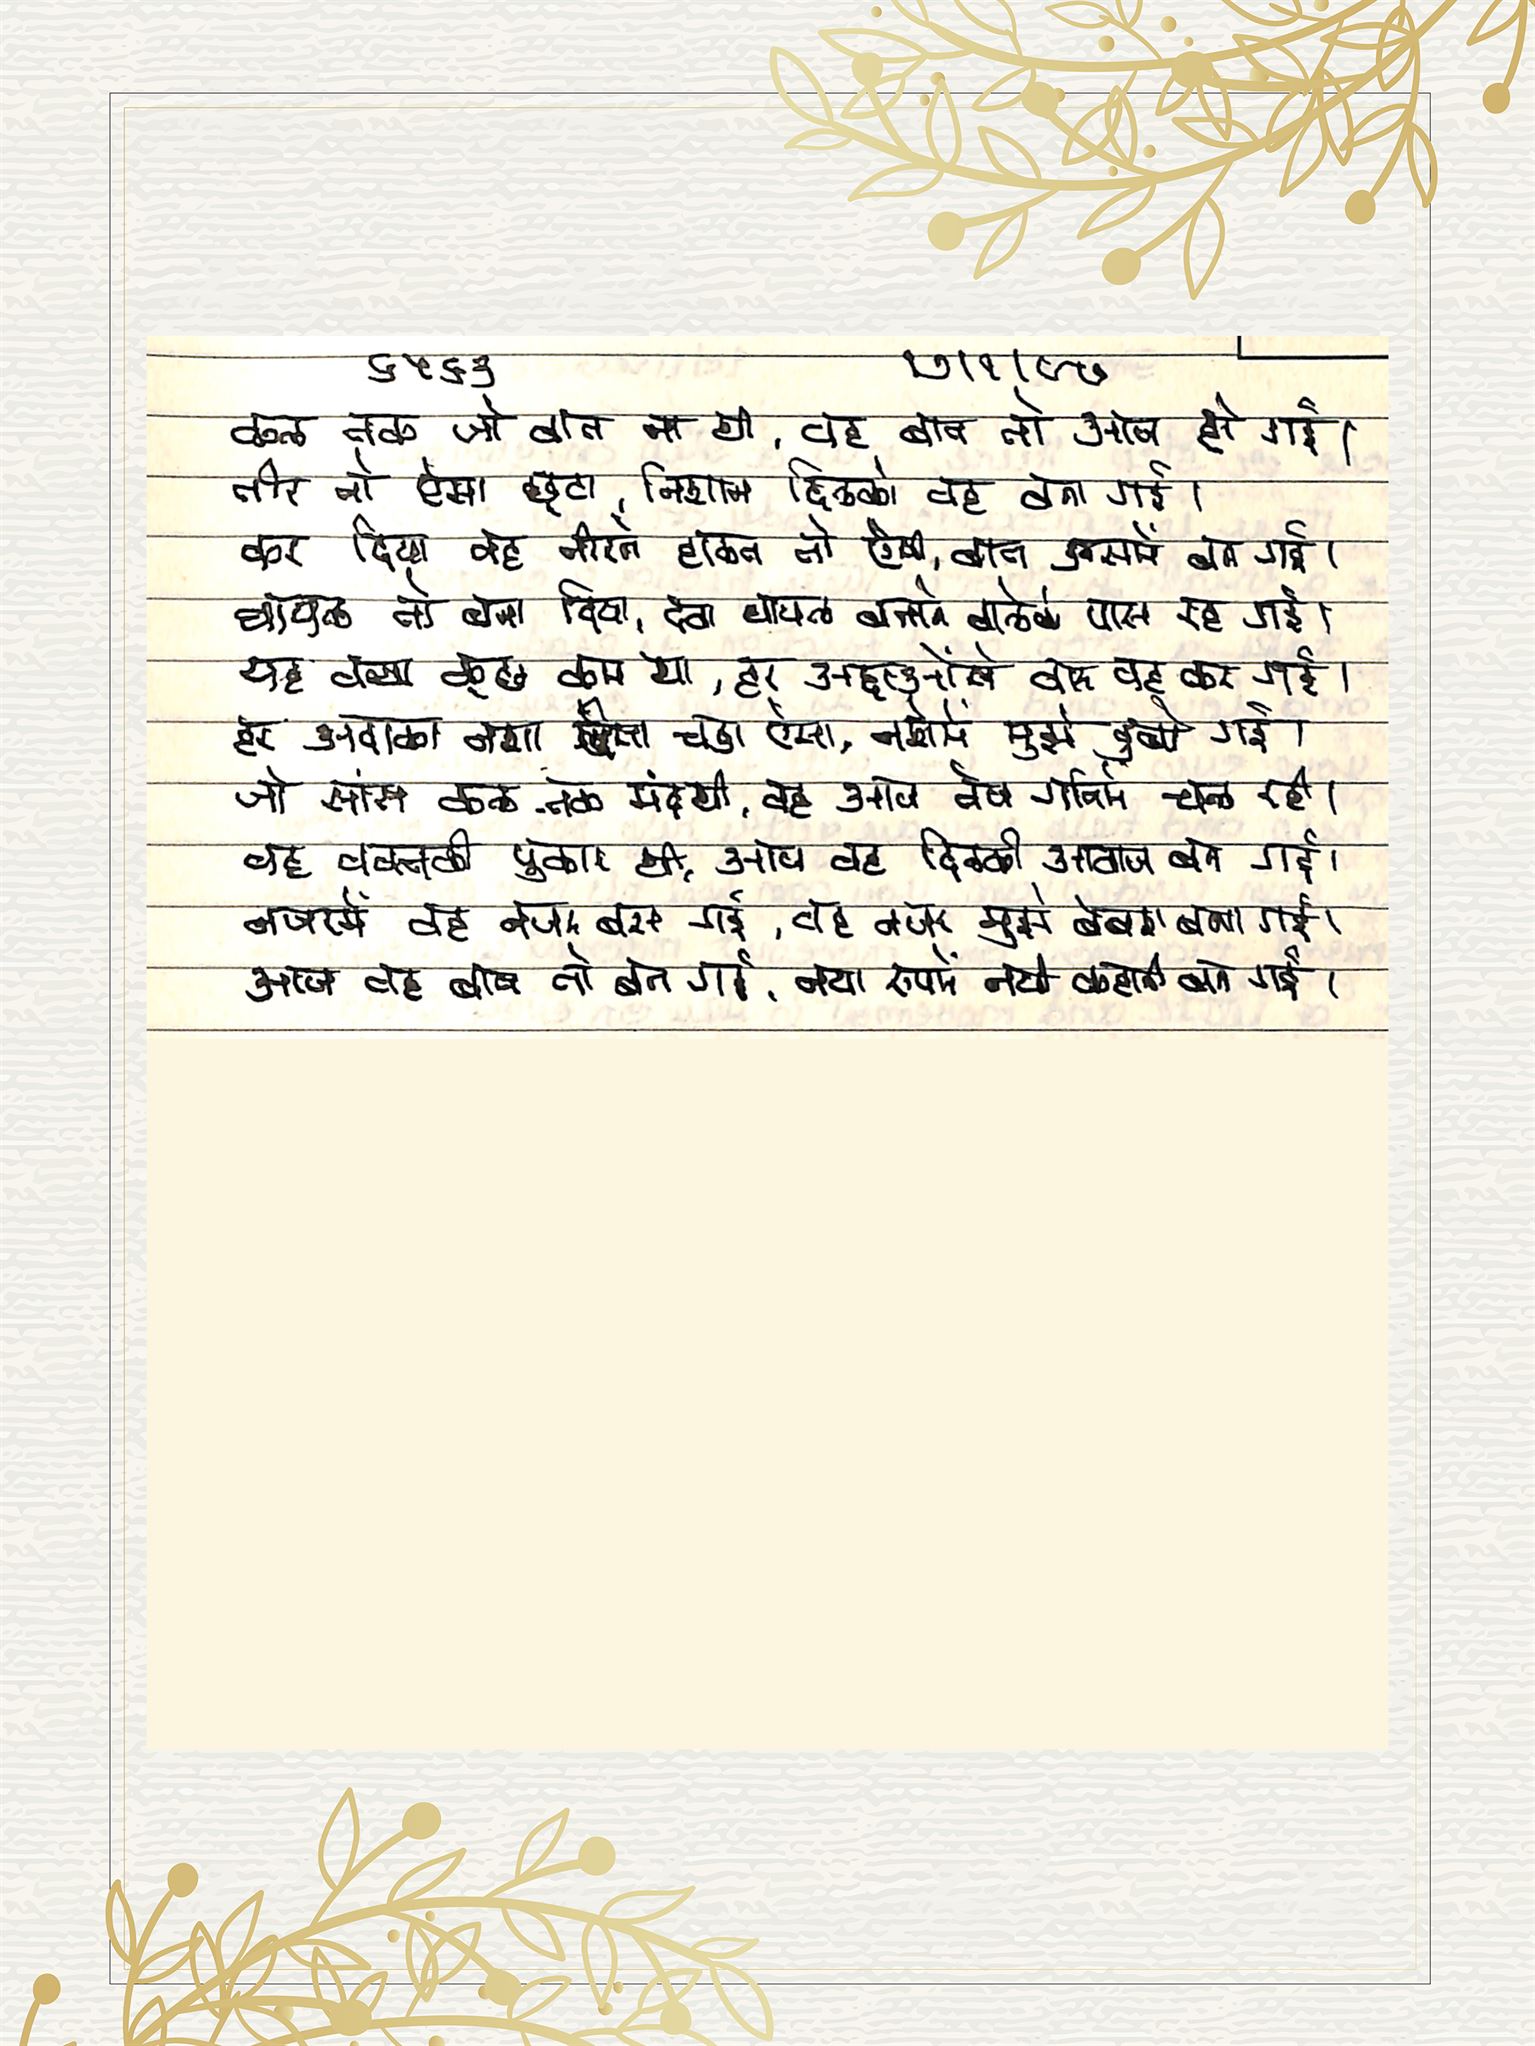 ६५६३ १७।१।८७
कल तक जो बात ना थी, वह बात तो आज हो गई।
तीर तो ऐसा छूटा, निशान दिलको वह बना गई।
कर दिया वह तीरने हालत तो ऐसी, बात उसमें बन गई।
घायल तो बना दिया, दवा घायल बनाने वालेके पास रह गई।
यह क्या कुछ कम था, हर वार वह कर गई।
हर अदाका नशा चढा ऐसा, नशेमें मुझे डुबो गई।
जो सांस कल तक मंद थी, वह आज तेज गतिमें चल रही।
वह वक्तकी पुकार थी, आज वह दिलकी आवाज बन गई।
नजरमें वह नजर बस गई, वह नजर मुझे बेबश बना गई।
आज वह बात तो बन गई, नया रुपमें नयी कहानी बन गई।